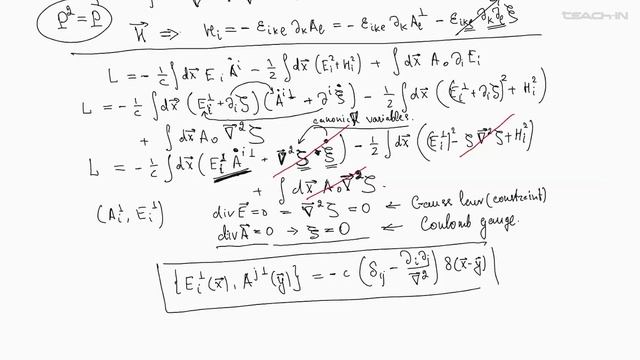 P² = P
TEACH-IN
H⃗ ⇒ Hᵢ = − εᵢₖₑ ∂ₖAₑ = − εᵢₖₑ ∂ₖAₑ^⊥ − εᵢₖₑ ∂ₖ∂ₑξ
L = − 1/c ∫dx⃗ Eᵢ Ȧⁱ − 1/2 ∫dx⃗ (Eᵢ² + Hᵢ²) + ∫dx⃗ A₀ ∂ᵢEᵢ
L = − 1/c ∫dx⃗ (Eᵢ^⊥ + ∂ᵢζ)(Ȧ^i⊥ + ∂ⁱξ̇) − 1/2 ∫dx⃗ ((Eᵢ^⊥ + ∂ᵢζ)² + Hᵢ²)
+ ∫dx⃗ A₀ ∇⃗²ζ canonical variables.
L = − 1/c ∫dx⃗ (Eᵢ^⊥ Ȧ^i⊥ + ∇⃗²ζ · ξ̇) − 1/2 ∫dx⃗ ((Eᵢ^⊥)² − ζ∇⃗²ζ + Hᵢ²)
+ ∫dx⃗ A₀ ∇⃗²ζ.
(Aᵢ^⊥, Eᵢ^⊥) div E⃗ = 0 = ∇⃗²ζ = 0 ← Gauss law (constraint)
div A⃗ = 0 → ξ = 0 ← Coulomb gauge.
{Eᵢ^⊥(x⃗), A^j⊥(y⃗)} = − c (δᵢⱼ − ∂ᵢ∂ⱼ/∇⃗²) δ(x⃗−y⃗)